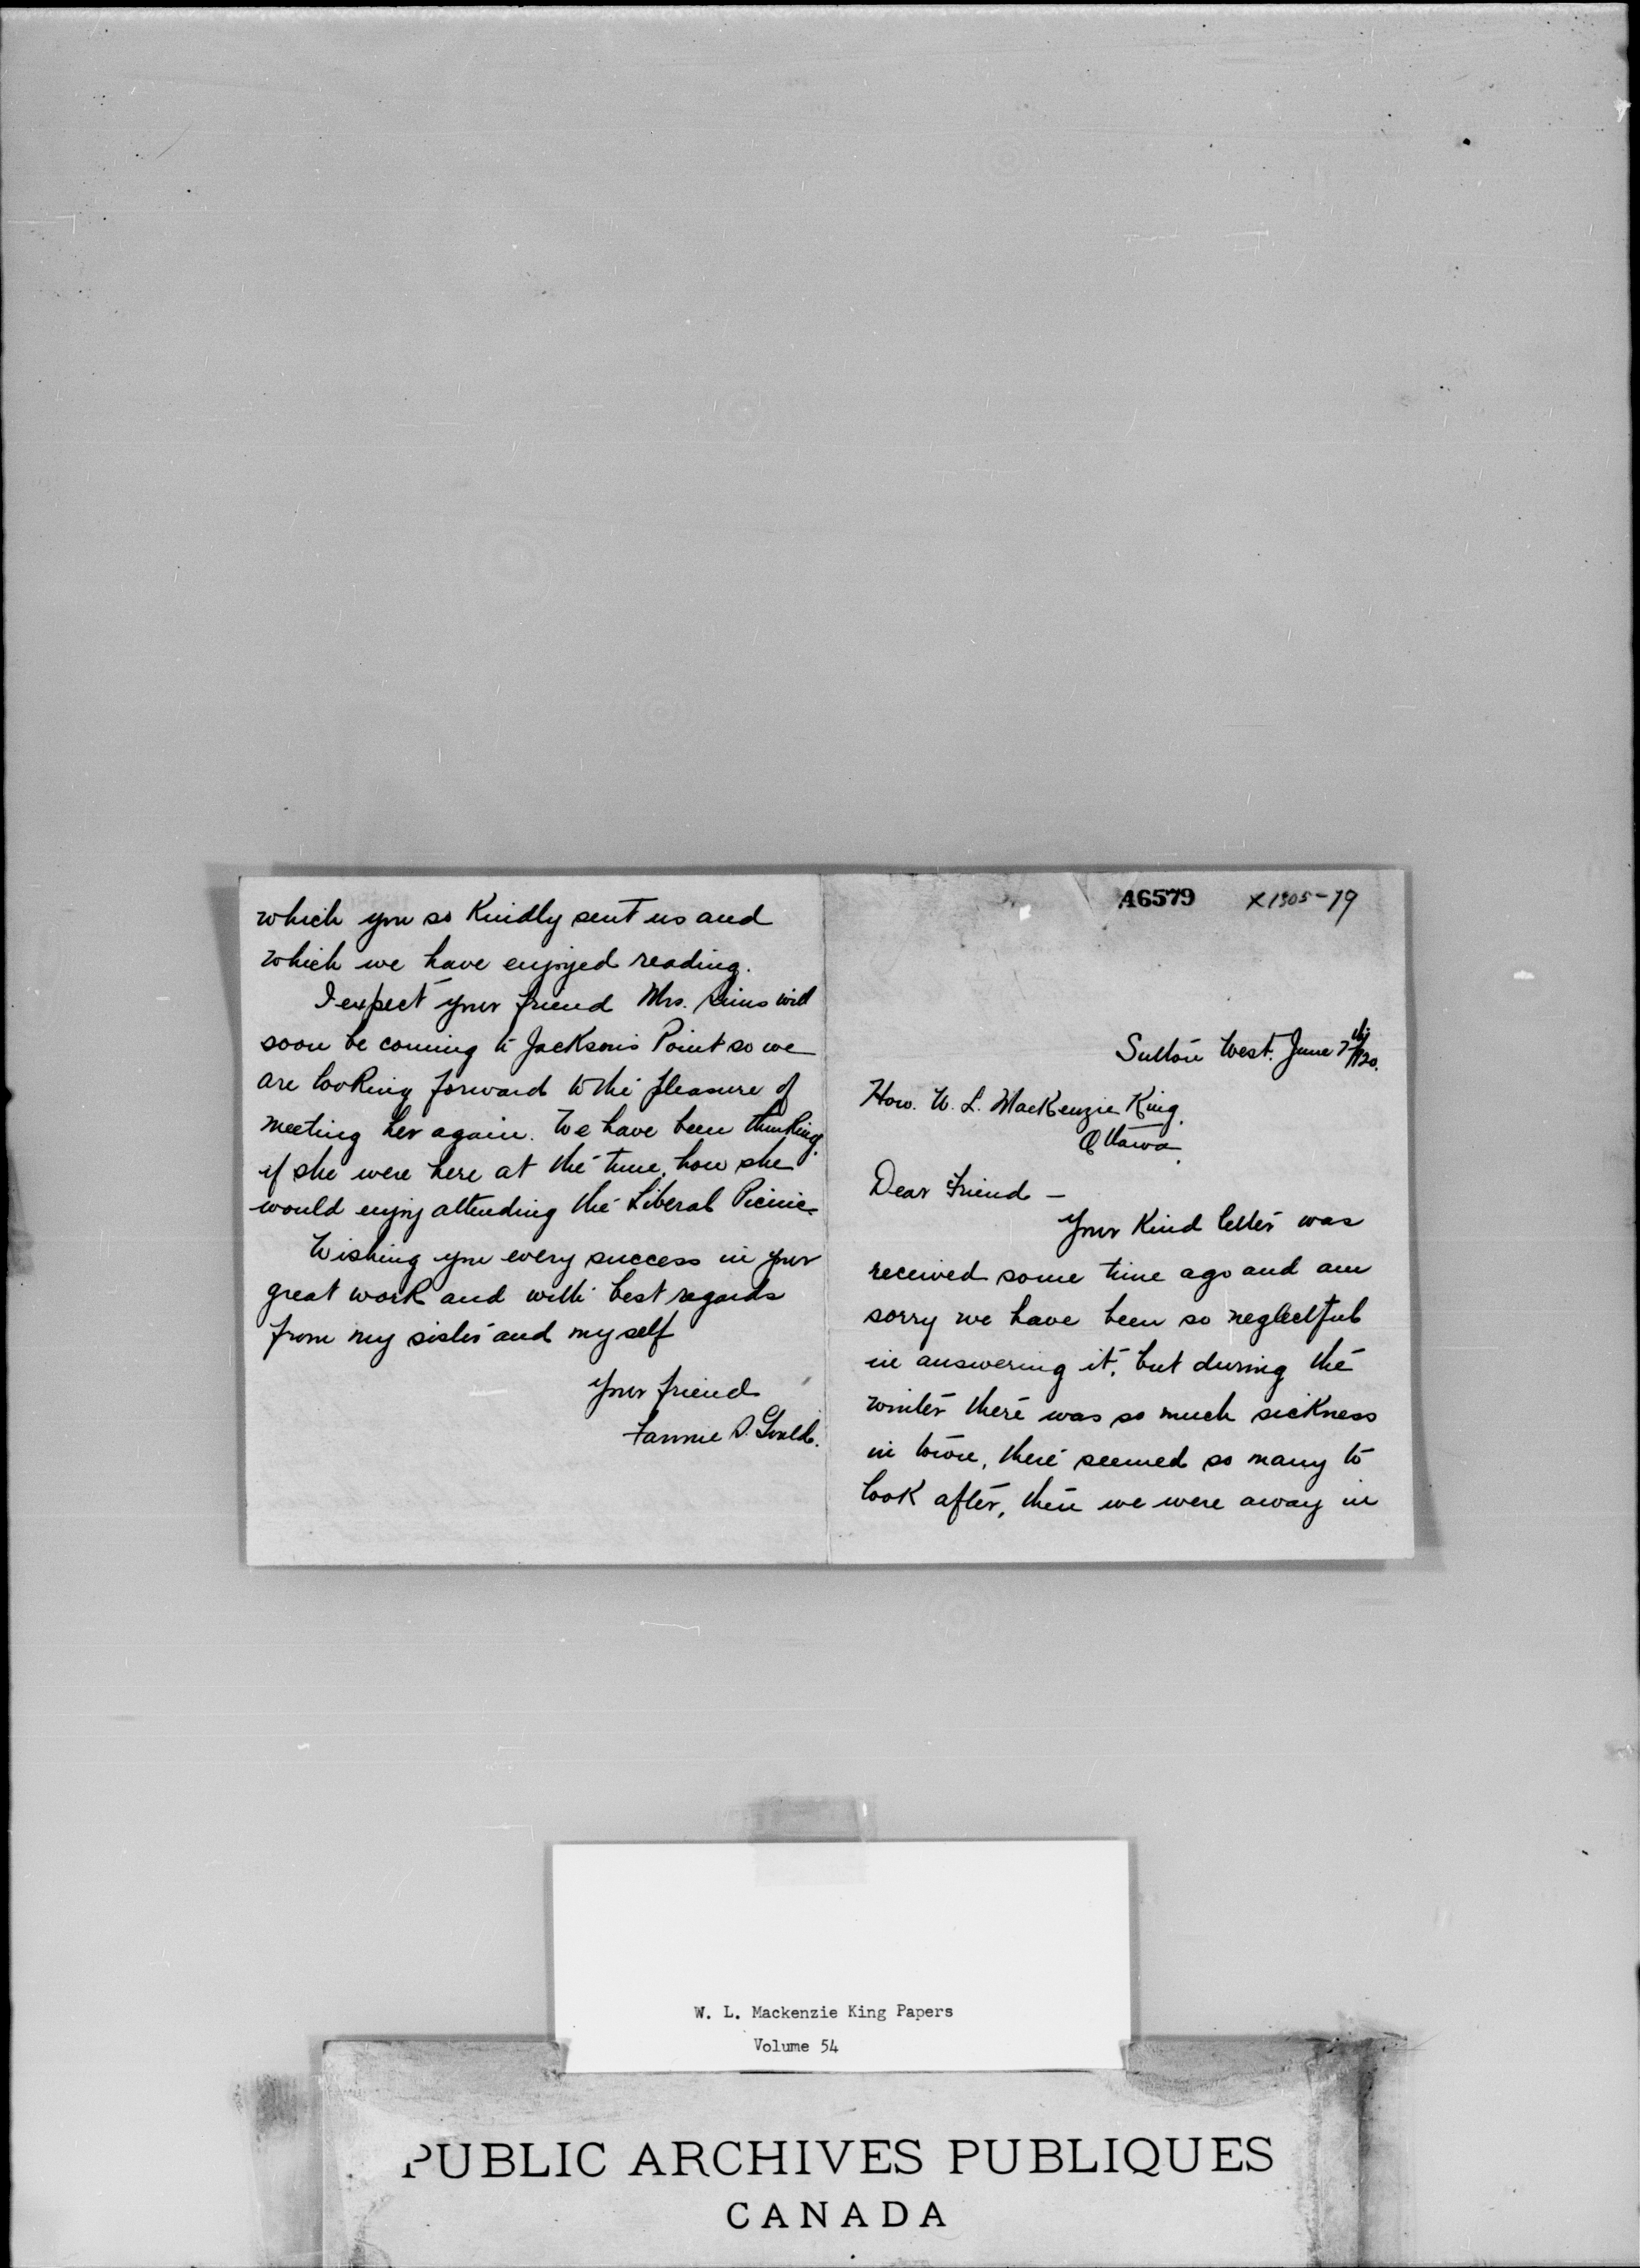 A6579 X1905-79
Sutton West. June 7th/20.
Hon. W. L. MacKenzie King.
Ottawa.
Dear Friend —
Your Kind letter was
received some time ago and am
sorry we have been so neglectful
in answering it, but during the
winter there was so much sickness
in town, there seemed so many to
look after, then we were away in
which you so Kindly sent us and
which we have enjoyed reading.
I expect your friend Mrs. will
soon be coming to Jackson's Point so we
are looking forward to the pleasure of
meeting her again. We have been thinking,
if she were here at the time, how she
would enjoy attending the Liberal Picnic
Wishing you every success in your
great work and with best regards
from my sister and myself
Your friend
Fannie
W. L. Mackenzie King Papers
Volume 54
PUBLIC ARCHIVES PUBLIQUES
CANADA